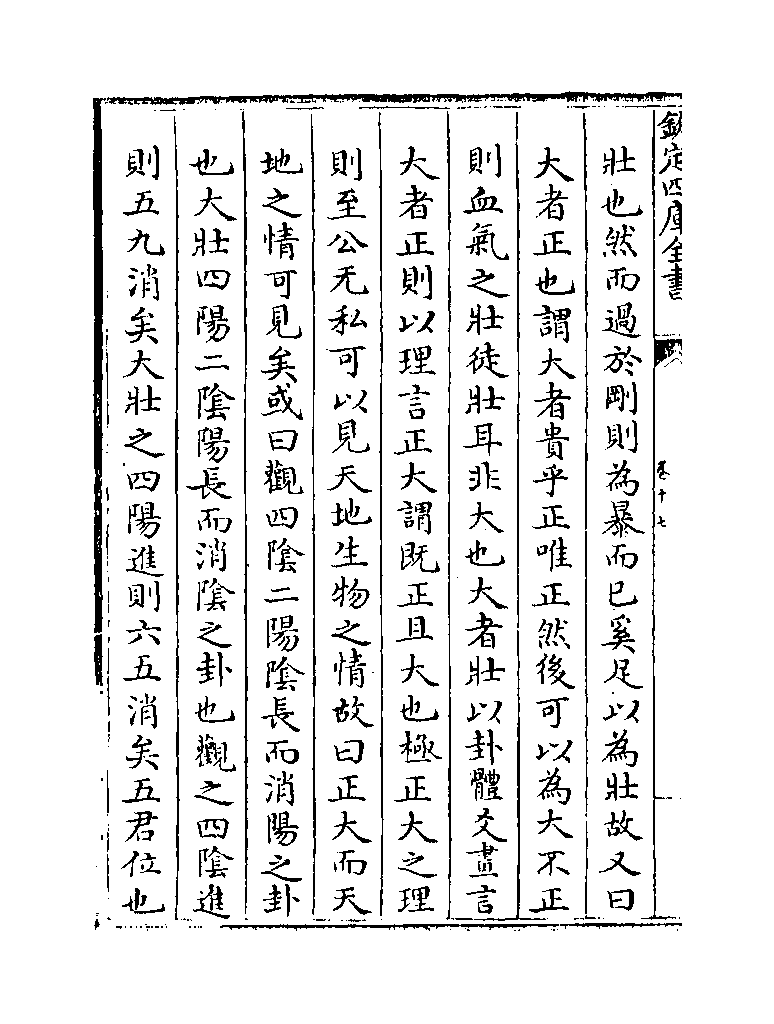 欽定四庫全書
卷十七
壯也然而過於剛則為暴而已奚足以為壯故又曰
大者正也謂大者貴乎正唯正然後可以為大不正
則血氣之壯徒壯耳非大也大者壯以卦體爻畫言
大者正則以理言正大謂既正且大也極正大之理
則至公无私可以見天地生物之情故曰正大而天
地之情可見矣或曰觀四陰二陽陰長而消陽之卦
也大壯四陽二陰陽長而消陰之卦也觀之四陰進
則五九消矣大壯之四陽進則六五消矣五君位也